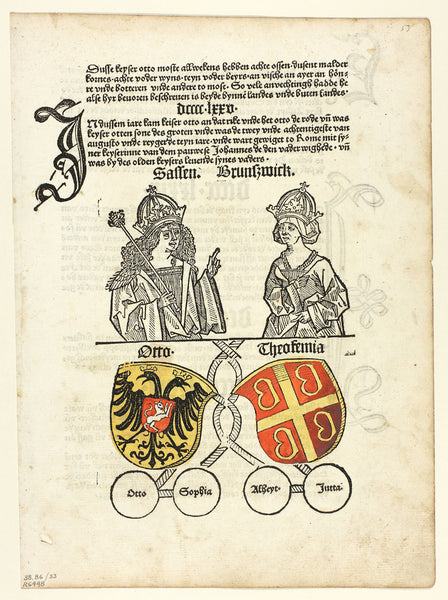 Dusse keyser otto moste allwekens hebben achte ossen·dusent malder
kornes·achte voder wyns·teyn voder beyrs·an vische an ayer an hön-
re vnde botteren vnde andere to mose· So vele anvechtingh hadde he
alse hyr bevoren beschreuen is beyde bynne landes vnde buten landes·
dcccc·lxxv·
IN dussem iare kam keiser otto an dat rike vnde het otto de rode vñ was
keyser otten sone des groten vnde was de twey vnde achtentigeste van
augusto vnde reygerde teyn iare·vnde wart gewiget to Rome mit sy-
ner keyserinne van dem pauwese Johannes de den vader wighede· vñ
was by des olden keysers leuende synes vaders·
Sassen· Brunszwick·
Otto· Theofemia
Otto Sophia Alheyt· Jutta·
38.86/33
R6448
53